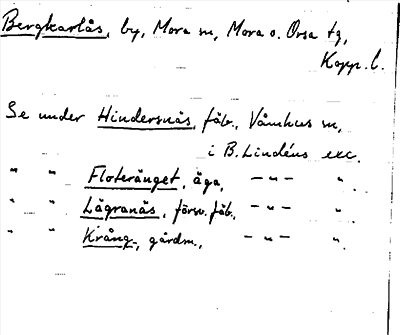 Bergkarlås, by, Mora sn, Mora o. Orsa tg,
Kopp. l.
Se under Hindersnäs, fäb., Våmhus sn,
i B. Lindéns exc.
" " Floteränget, äga, -"- "
" " Lägranäs, försv. fäb., -"- "
" " Krång-, gårdn., -"- "